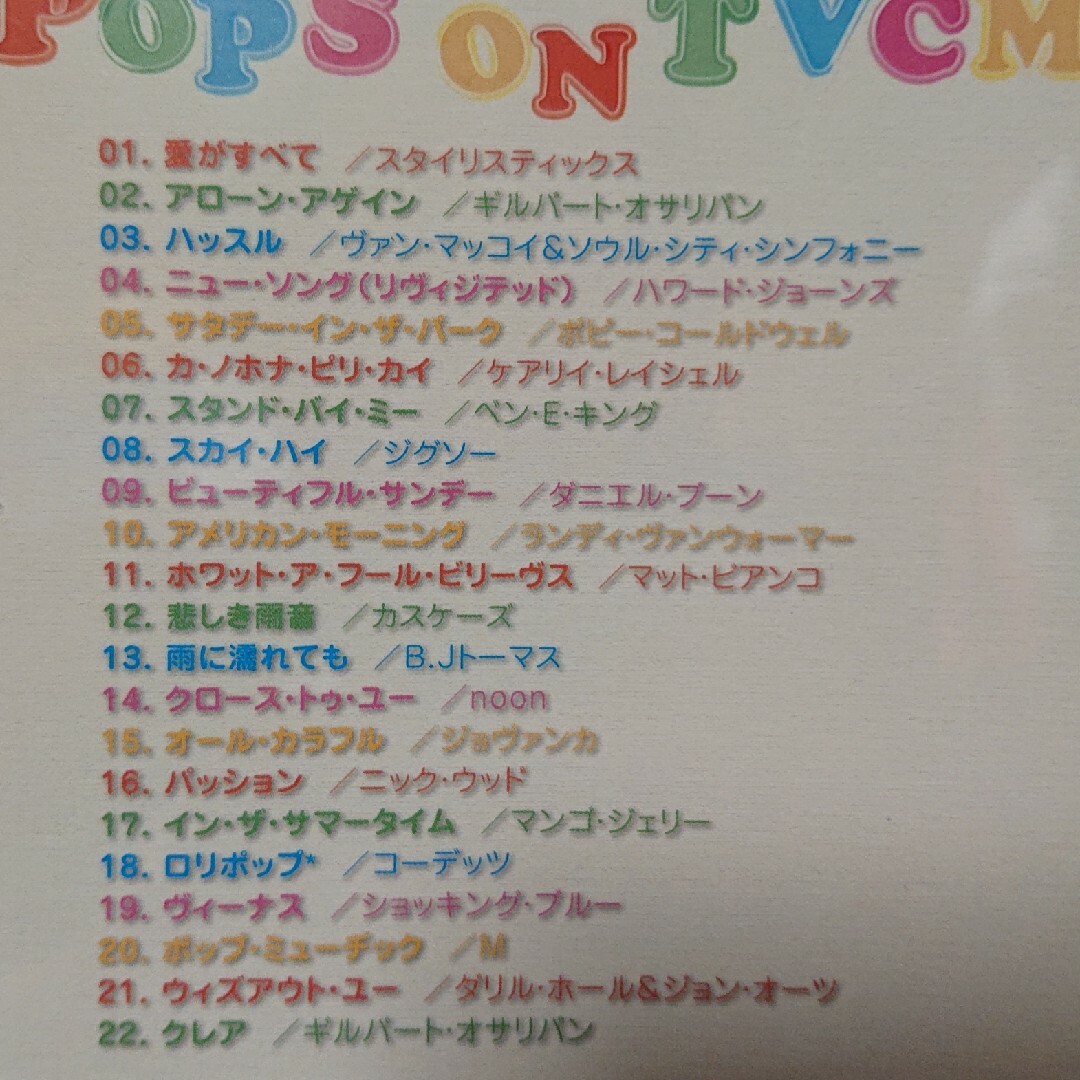 POPS ON TVCM
01. 愛がすべて ／スタイリスティックス
02. アローン・アゲイン ／ギルバート・オサリバン
03. ハッスル ／ヴァン・マッコイ&ソウル・シティ・シンフォニー
04. ニュー・ソング(リヴィジテッド) ／ハワード・ジョーンズ
05. サタデー・イン・ザ・パーク ／ボビー・コールドウェル
06. カ・ノホナ・ピリ・カイ ／ケアリイ・レイシェル
07. スタンド・バイ・ミー ／ベン・E・キング
08. スカイ・ハイ ／ジグソー
09. ビューティフル・サンデー ／ダニエル・ブーン
10. アメリカン・モーニング ／ランディ・ヴァンウォーマー
11. ホワット・ア・フール・ビリーヴス ／マット・ビアンコ
12. 悲しき雨音 ／カスケーズ
13. 雨に濡れても ／B.Jトーマス
14. クロース・トゥ・ユー ／noon
15. オール・カラフル ／ジョヴァンカ
16. パッション ／ニック・ウッド
17. イン・ザ・サマータイム ／マンゴ・ジェリー
18. ロリポップ* ／コーデッツ
19. ヴィーナス ／ショッキング・ブルー
20. ポップ・ミューヂック ／M
21. ウィズアウト・ユー ／ダリル・ホール&ジョン・オーツ
22. クレア ／ギルバート・オサリバン